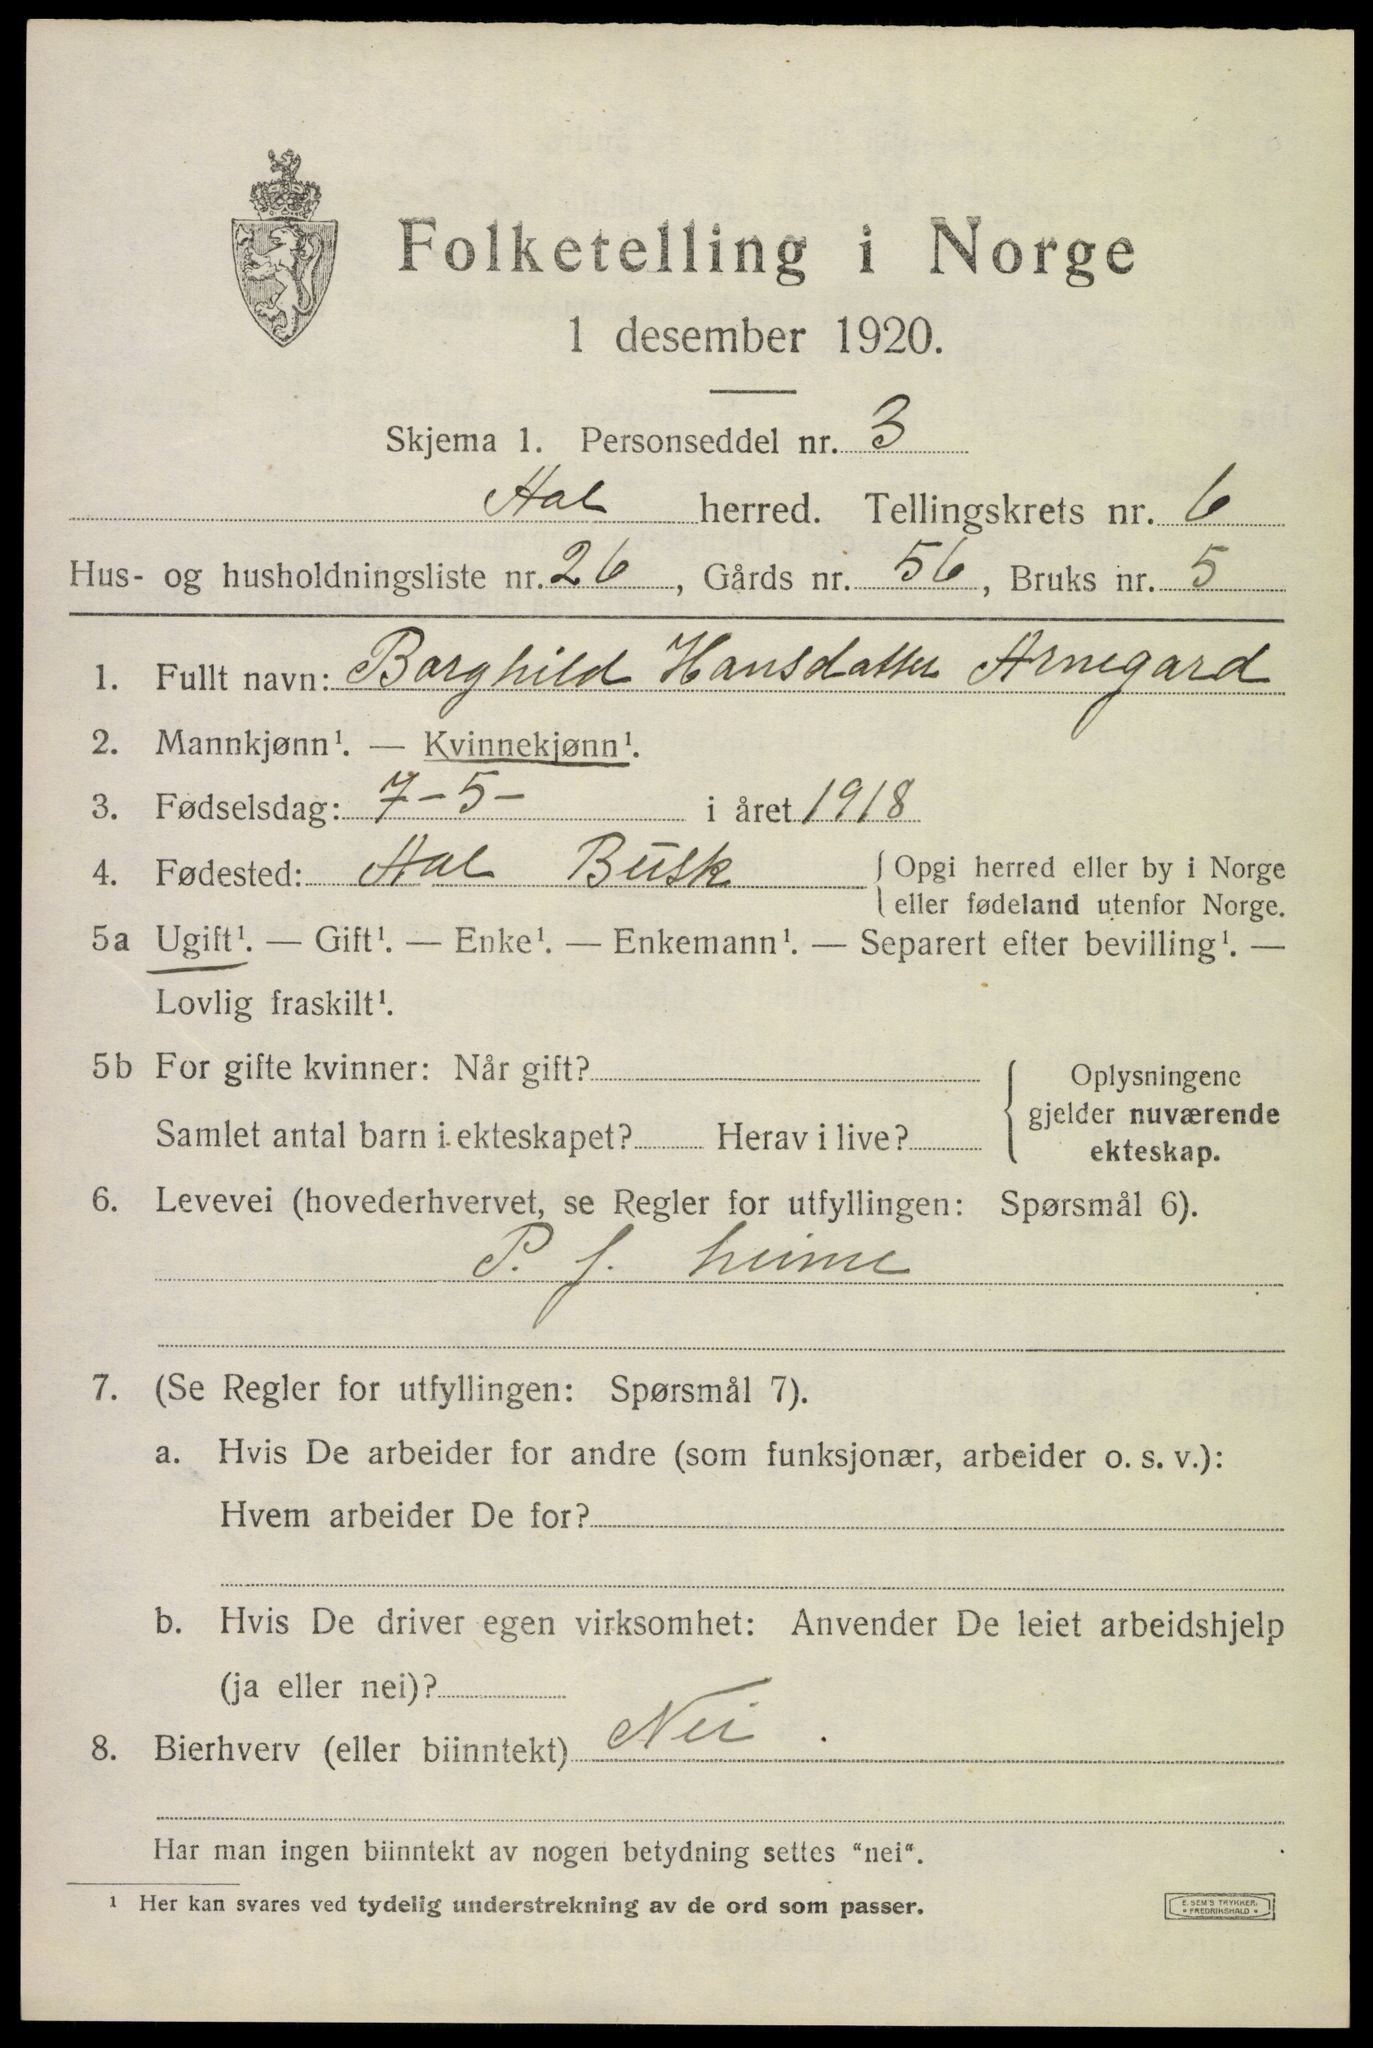 Folketelling i Norge
1 desember 1920.
Skjema 1. Personseddel nr. 3
Aal herred. Tellingskrets nr. 6
Hus- og husholdningsliste nr. 26, Gårds nr. 56, Bruks nr. 5
1. Fullt navn: Borghild Hansdatter Arnegard
2. Mannkjønn¹. — Kvinnekjønn¹.
3. Fødselsdag: 7-5- i året 1918
4. Fødested: Aal Busk { Opgi herred eller by i Norge
eller fødeland utenfor Norge.
5a Ugift¹. — Gift¹. — Enke¹. — Enkemann¹. — Separert efter bevilling¹. —
Lovlig fraskilt¹.
5b For gifte kvinner: Når gift?
Samlet antal barn i ekteskapet? Herav i live?
Oplysningene
gjelder nuværende
ekteskap.
6. Levevei (hovederhvervet, se Regler for utfyllingen: Spørsmål 6).
P. f. heime
7. (Se Regler for utfyllingen: Spørsmål 7).
a. Hvis De arbeider for andre (som funksjonær, arbeider o. s. v.):
Hvem arbeider De for?
b. Hvis De driver egen virksomhet: Anvender De leiet arbeidshjelp
(ja eller nei)?
8. Bierhverv (eller biinntekt) Nei.
Har man ingen biinntekt av nogen betydning settes "nei".
¹ Her kan svares ved tydelig understrekning av de ord som passer.
E. SEM'S TRYKKERI
FREDRIKSHALD